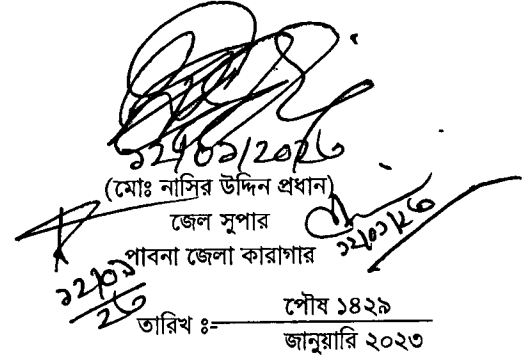 ১২/০১/২০২৩
(মোঃ নাসির উদ্দিন প্রধান)
জেল সুপার
পাবনা জেলা কারাগার
১২/০১/২৩
১২/০১
২৩
পৌষ ১৪২৯
তারিখ ঃ-
জানুয়ারি ২০২৩